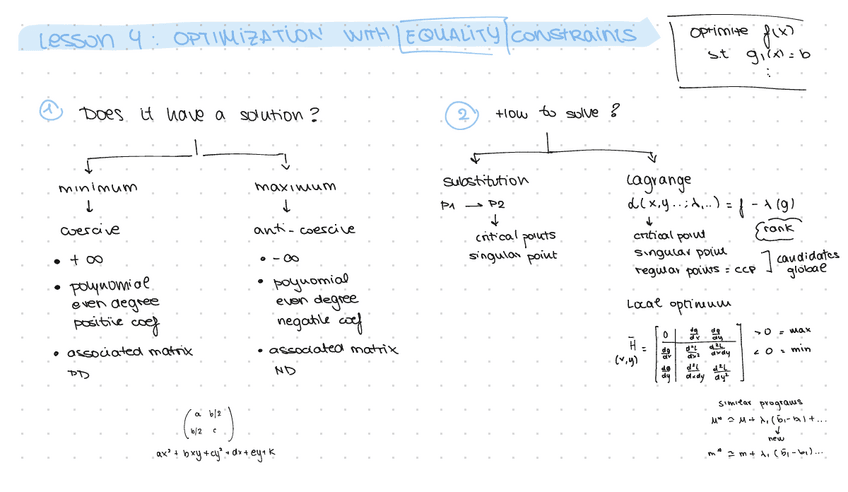 Lesson 4: OPTIMIZATION WITH EQUALITY CONSTRAINTS
OPTIMITE f(x)
s.t g₁(x) = b
⋮
1 Does it have a solution?
minimum
↓
coercive
• + ∞
• polynomial
even degree
positive coef
• associated matrix
PD
maximum
↓
anti-coercive
• - ∞
• polynomial
even degree
negative coef
• associated matrix
ND
( a b/2
b/2 c )
ax² + bxy + cy² + dx + ey + K
2 How to solve?
substitution
P1 → P2
↓
critical points
singular point
Lagrange
L(x,y...;λ,..) = f - λ(g)
↓
rank
critical point
singular point
regular points = CCP
candidates
global
Local optimum
H̄ (x,y) =
0 dg/dx dg/dy
dg/dx d²L/dx² d²L/dxdy
dg/dy d²L/dxdy d²L/dy²
>0 = max
<0 = min
similar programs
M* ≃ M + λ₁ (b̄₁-b₁) + ...
↓
new
m* ≃ m + λ₁ (b̄₁-b₁) ...